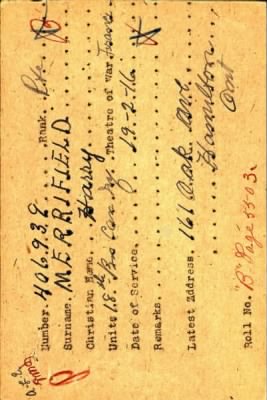 Number. 406939 Rank. Pte
Surname. MERRIFIELD
Christian Name. Harry
Units 18th Bn Can Inf Theatre of War. France
Date of Service. 19-2-16
Remarks.
Latest Address. 161 Oak Ave
Hamilton
Ont
Roll No. "B" Page 5503.